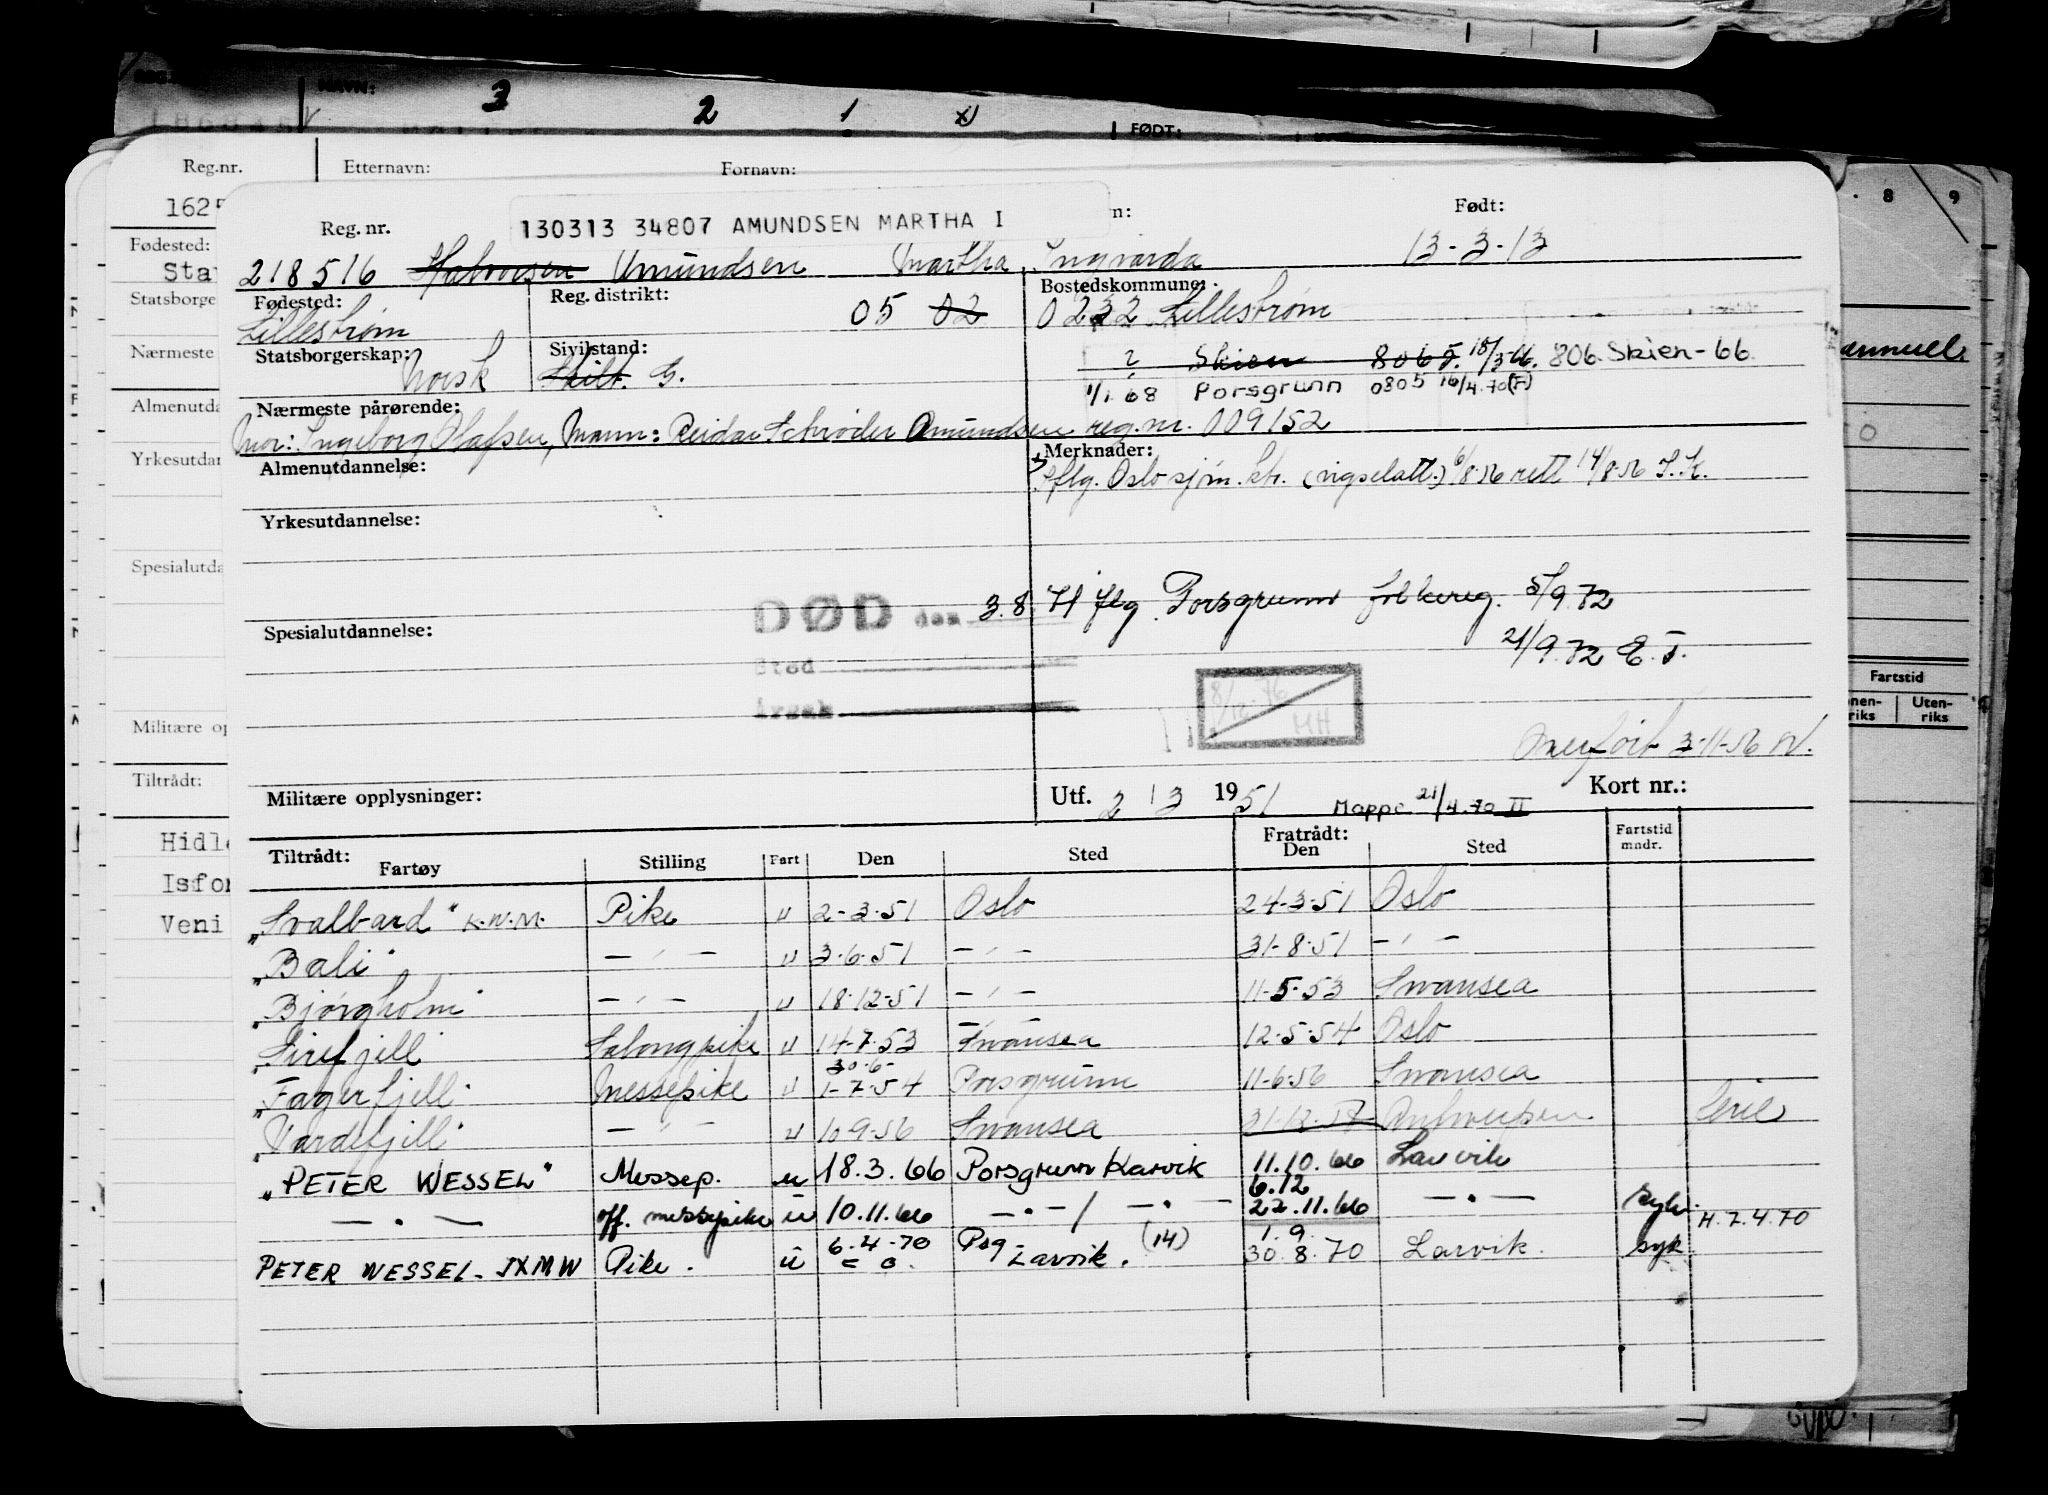 NAVN:
3 2 1
FØDT:
Reg.nr. Etternavn: Fornavn:
8 9
Fødested:
Statsborge
Nærmeste
Almenutda
Yrkesutdan
Spesialutda
Militære op
Tiltrådt:
Isfor
Veni
Fartstid
Uten-
riks
Reg. nr. 130313 34807 AMUNDSEN MARTHA I Født:
218516 Halvorsen Amundsen Martha Ingvarda 13-3-13
Fødested: Reg. distrikt: Bostedskommune:
Lillestrøm 05 02 0232 Lillestrøm
Statsborgerskap: Sivilstand:
Norsk Skilt. G.
Skien 806 18/3-66. 806. Skien-66.
1/1.68 Porsgrunn 0805 16/4.70(F)
Nærmeste pårørende:
Mor: Ingeborg Olafsen, Mann: Reidar Schrøder Amundsen reg.nr. 009152
Almenutdannelse: Merknader:
Iflg. Oslo sjøm.ktr. (vigselatt.) 6/8-56 rett 14/8-56
Yrkesutdannelse:
DØD den 3.8. 71 iflg. Porsgrunn folkereg. 5/9.72
Spesialutdannelse:
21/9.72 E.J.
Sted
Årsak
8/12-76
MH
Overført 3-11-56
Militære opplysninger: Utf. 2 / 3 1951 Mappe 21/4.70 II Kort nr.:
Tiltrådt: Fratrådt:
Fartøy Stilling Fart Den Sted Den Sted Fartstid mndr.
"Svalbard" K.N.M. Pike u 2-3-51 Oslo 24-3-51 Oslo
"Bali" — " — u 3-6-51 — " — 31-8-51 — " —
"Bjørgholm" — " — u 18-12-51 — " — 11-5-53 Swansea
"Sirefjell" Salongpike u 14-7-53 Swansea 12-5-54 Oslo
30-6-
"Fagerfjell" Messepike u 1-7-54 Porsgrunn 11-6-56 Swansea
"Vardefjell" — " — u 10-9-56 Swansea 31-12-57 Antwerpen
"PETER WESSEL" Messep. u 18.3.66 Porsgrunn Larvik 11.10.66 Larvik
6.12
— " — off. messepike u 10.11.66 — " — / — " — 22.11.66 — " — H.7.4.70
6.4.70 Psg (14) 1.9.
PETER WESSEL - JXMW Pike. u Larvik. 30.8.70 Larvik. syk.